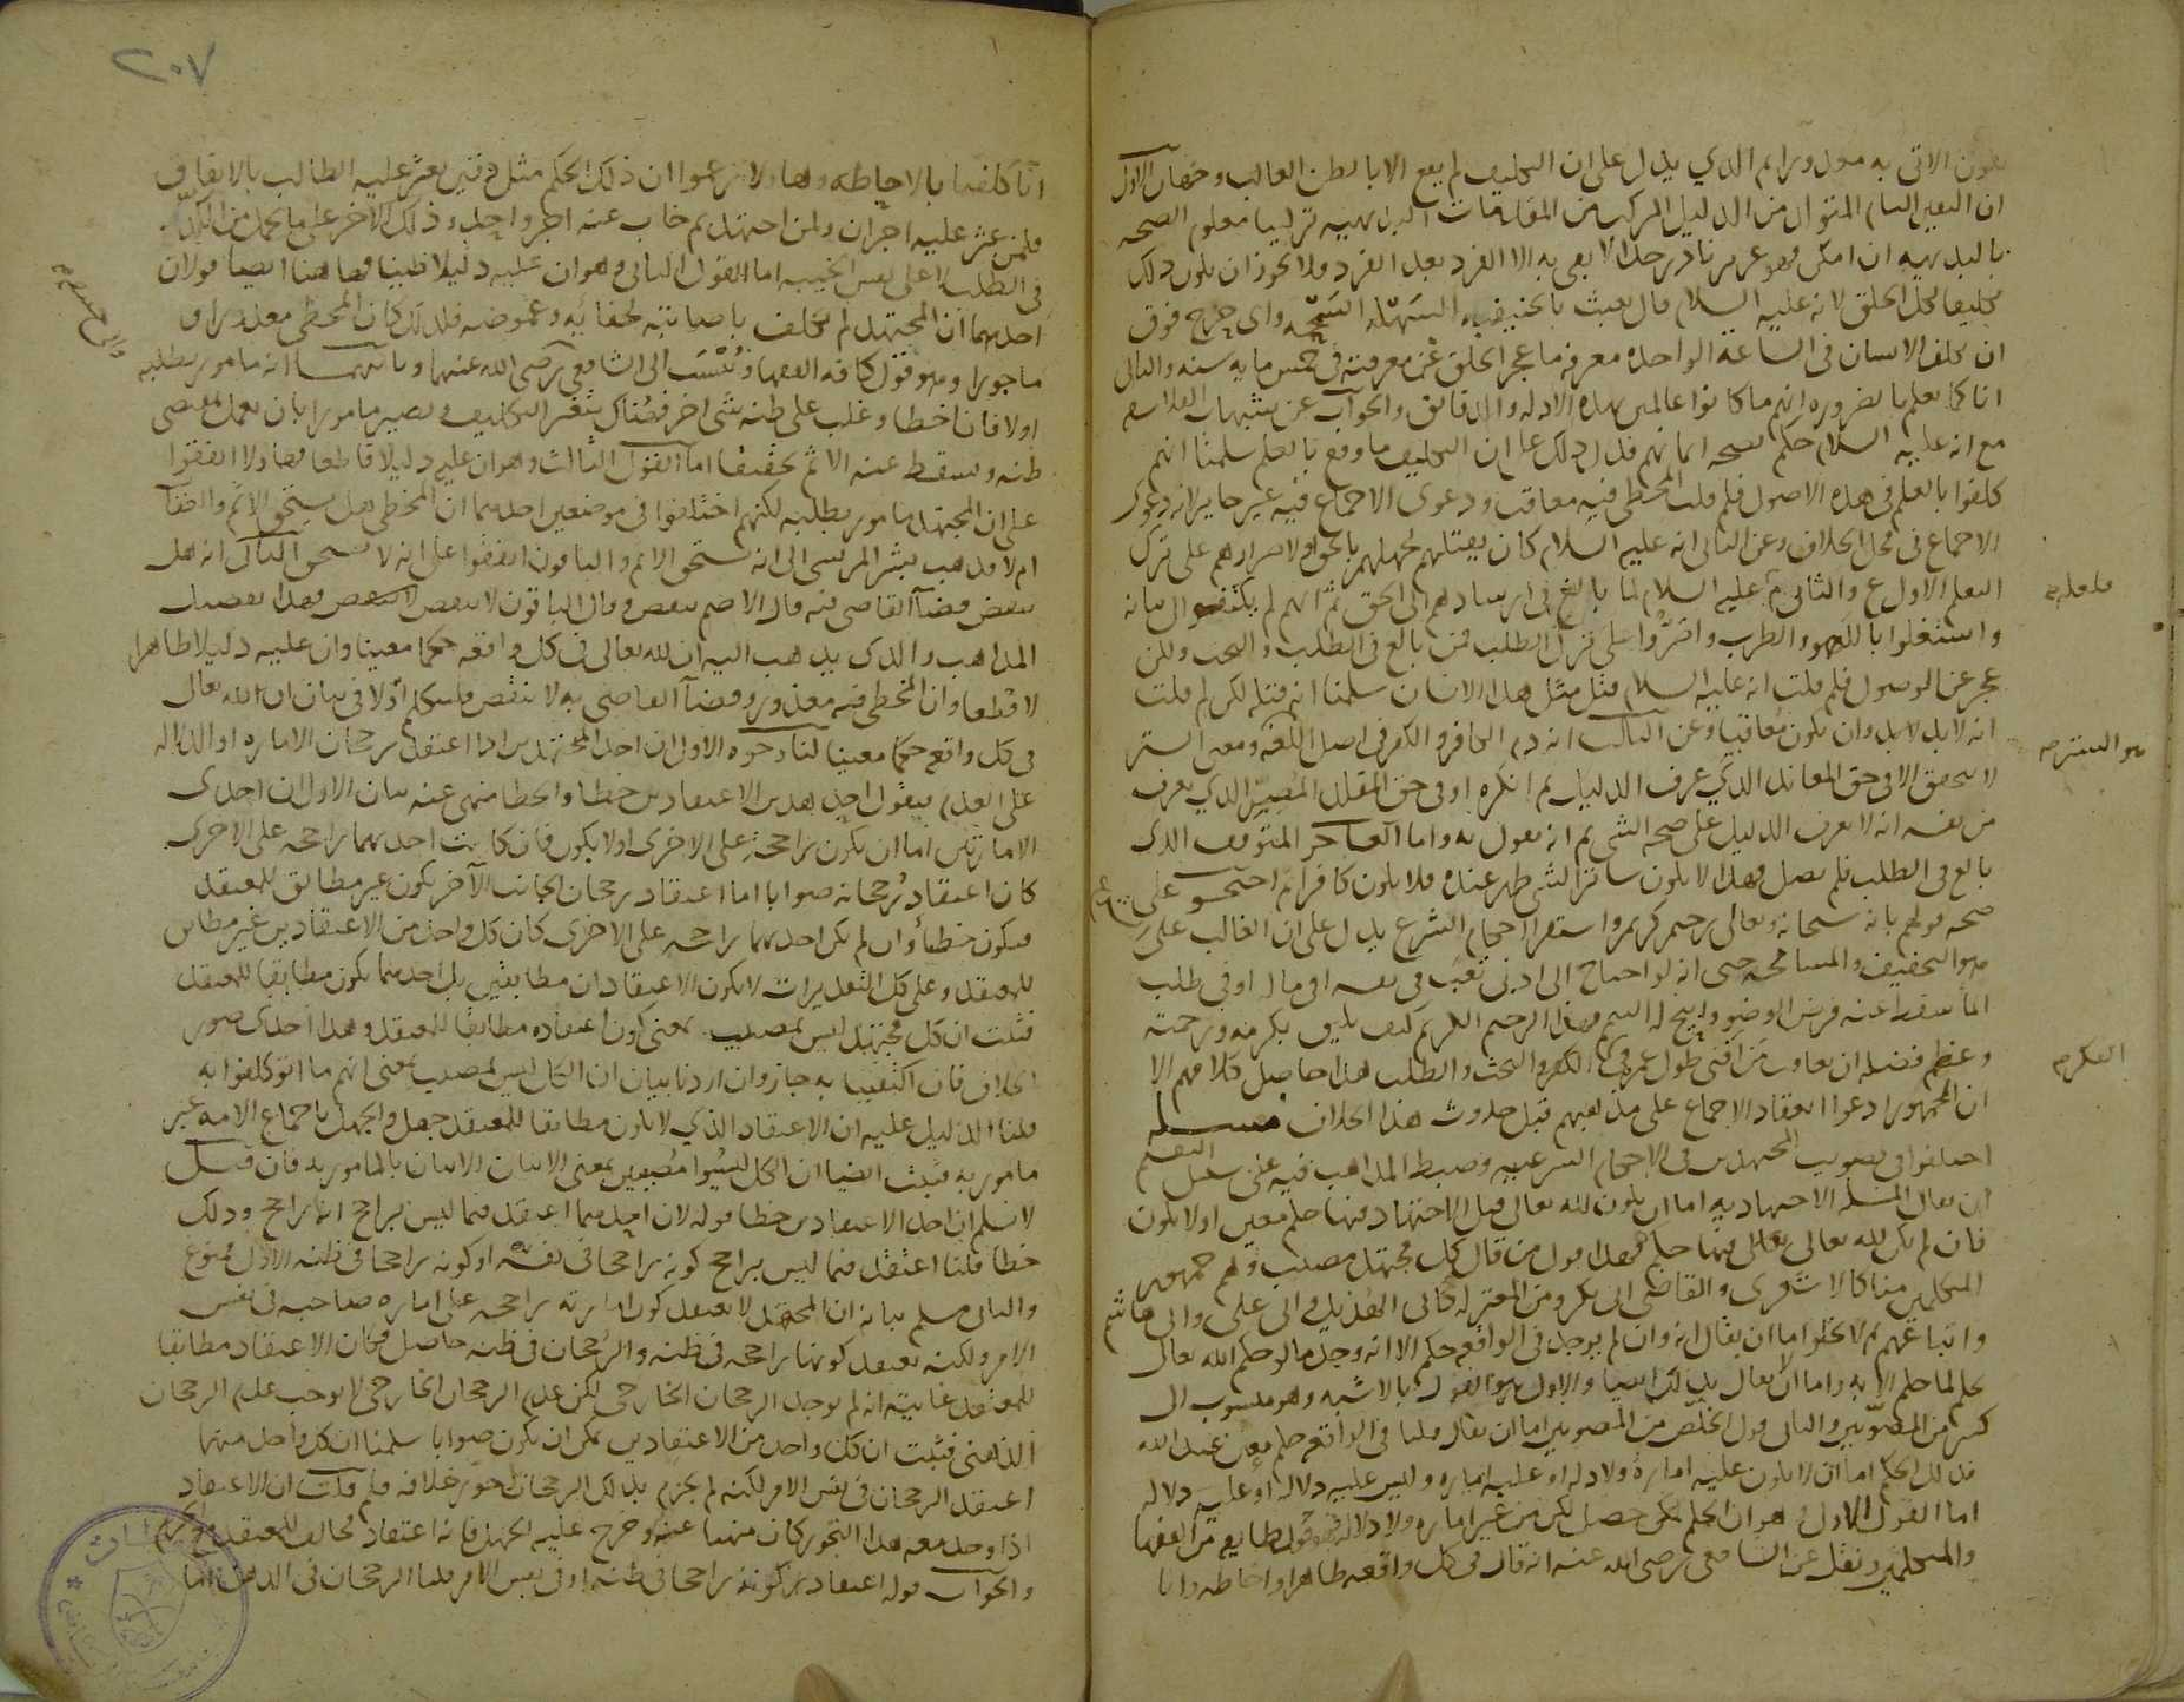 يكون الاتى به معذورا ثم الذي يدل على ان التكليف لم يقع الا بالظن الغالب وجهان الاول
ان اليقين التام المتولد من الدليل المركب من المقدمات البديهيه تركيبا معلوم الصحه
بالبديهه ان امكن فهو عزيز نادر جدا لا يفي به الا الفرد بعد الفرد فلا يجوز ان يكون ذلك
تكليفا لكل الخلق لانه عليه السلام قال بعثت بالحنيفيه السهله السمحه واى حرج فوق
ان يكلف الانسان فى الساعة الواحده معرفه ما عجز الخلق عن معرفته فى خمس مايه سنه والثانى
انا كما نعلم بالضروره انهم ما كانوا عالمين بهذه الادله والدقائق والجواب عن شبهات الفلاسفه
مع انه عليه السلام حكم بصحه ايمانهم فدل ذلك على ان التكليف ما وقع بالعلم سلمنا انهم
كلفوا بالعلم فى هذه الاصول فلم قلت المخطى فيه معاقب ودعوى الاجماع فيه غير جايز لانه دعوى
الاجماع فى محل الخلاف وعن الثانى انه عليه السلام كان يقتلهم لجهلهم بالحق او لاصرارهم على ترك
التعلم الاول ع والثانى م عليه السلام لما بالغ فى ارشادهم الى الحق ثم انهم لم يلتفتوا الى بيانه
واشتغلوا باللهو والطرب واصروا على ترك الطلب فمن بالغ فى الطلب والبحث ولكن
عجز عن الوصول فلم قلت انه عليه السلام قتل مثل هذا الانسان سلمنا انه قتله لكن لم قلت
انه لابد وان يكون معاقبا وعن الثالث انه ذم الكافر والكفر فى اصل اللغه ومعنى الستر
لا يتحقق الا فى حق المعاند الذي عرف الدليل ثم انكره او فى حق المقلد المصر الذي يعرف
من نفسه انه لا يعرف الدليل على صحه الشى ثم انه يقول به واما العاجز المتوقف الذى
بالغ فى الطلب فلم يصل فهذا لا يكون ساترا لشى ظهر عنده فلا يكون كافرا ثم احتجوا على
صحه قولهم بانه سبحانه وتعالى رحيم كريم واستقرا احكام الشرع يدل على ان الغالب على
هو التخفيف والمسامحه حتى انه لو احتاج الى ادنى تعب فى نفسه او مال او فى طلب
الما سقط عنه فرض الوضو وابيح له التيمم فهذا الرحيم الكريم كيف يليق بكرمه ورحمته
وعظم فضله ان يعاقب من افنى طول عمره فى الفكر والبحث والطلب هذا حاصل كلامهم الا
ان الجمهور ادعوا انعقاد الاجماع على مذهبهم قبل حدوث هذا الخلاف مسله
اختلفوا فى تصويب المجتهدين فى الاحكام الشرعيه وضبط المذاهب فيه على سبيل التقسيم
ان يقال المسله الاجتهاديه اما ان يكون لله تعالى قبل الاجتهاد فيها حكم معين او لا يكون
فان لم يكن لله تعالى فيها حكم فهذا قول من قال كل مجتهد مصيب وهم جمهور
المتكلمين منا كالاشعرى والقاضى ابى بكر ومن المعتزله كابى الهذيل وابى على وابى هاشم
واتباعهم ثم لا يخلوا اما ان يقال انه وان لم يوجد فى الواقعه حكم الا انه وجد ما لو حكم الله تعالى
بحكم لما حكم الا به واما ان لا يقال بذلك ايضا والاول هو القول بالاشبه وهو منسوب الى
كثير من المصوبين والثانى قول الخلص من المصوبين اما ان يقال قلنا فى الواقعه حكم معين عند الله
فذلك الحكم اما ان لا يكون عليه امارة ولا دلاله او عليه اماره وليس عليه دلاله او عليه دلاله
اما القول الاول وهو ان الحكم حصل لكن من غير اماره ولا دلاله فهو قول طايفه من الفقها
والمتكلمين ونقل عن الشافعى رضى الله عنه انه قال فى كل واقعه ظاهرا واحاطه وانا
فاعلم
هو الستر
الفكر
٢٠٧
انا كلفنا بالاحاطه وهاولا زعموا ان ذلك الحكم مثل دفين يعثر عليه الطالب بالاتفاق
فلمن عثر عليه اجران ولمن اجتهد ثم خاب عنه اجر واحد وذلك الاخر على ما تحمل من الكد
فى الطلب لا على نفس الخيبه اما القول الثانى وهو ان عليه دليلا ظنيا فهاهنا ايضا قولان
احدهما ان المجتهد لم يكلف باصابته لخفائه وغموضه فلذلك كان المخطى معذورا و
ماجورا وهو قول كافه الفقها وينسب الى الشافعى رضى الله عنهما وثانيهما انه مامور بطلبه
اولا فان اخطا وغلب على ظنه شى اخر فهناك يتغير التكليف ويصير مامورا بان يعمل بمقتضى
ظنه ويسقط عنه الاثم تخفيفا اما القول الثالث وهو ان عليه دليلا قاطعا فهاولا اتفقوا
على ان المجتهد مامور بطلبه لكنهم اختلفوا فى موضعين احدهما ان المخطى هل يستحق الاثم
ام لا فذهب بشر المريسى الى انه يستحق الاثم والباقون اتفقوا على انه لا يستحق الثانى انه هل
ينقض قضا القاضى فيه قال الاصم ينقض وقال الباقون لا ينقض فهذا تفصيل
المذاهب والذى يذهب اليه ان لله تعالى فى كل واقعه حكما معينا وان عليه دليلا ظاهرا
لا قطعا وان المخطى فيه معذور وقضا القاضى به لا ينقض فلنتكلم اولا فى بيان ان لله تعالى
فى كل واقعه حكما معينا لنا وجوه الاول ان احد المجتهدين اذا اعتقد رجحان الاماره او الدلاله
على العدم فيقول احد هذين الاعتقادين خطا والخطا منهى عنه بيان الاول ان احدى
الامارتين اما ان يكون راجحه على الاخرى او لا يكون فان كانت احديهما راجحه على الاخرى
كان اعتقاد رجحانه صوابا اما اعتقاد رجحان الجانب الآخر يكون غير مطابق للمعتقد
فيكون خطأ وان لم يكن احديهما راجحه على الاخرى كان كل واحد من الاعتقادين غير مطابق
للمعتقد وعلى كل التقديرات لا يكون الاعتقادان مطابقين بل احدهما يكون مطابقا للمعتقد
فثبت ان كل مجتهد ليس بمصيب بمعنى كون اعتقاده مطابقا للمعتقد وهذا احدى صور
الخلاف فان اكتفينا به جاز وان اردنا بيان ان الكل ليس بمصيب بمعنى انهم ما اتوا كلفوا به
قلنا الدليل عليه ان الاعتقاد الذي لا يكون مطابقا للمعتقد جهل والجهل باجماع الامه غير
مامور به فثبت ايضا ان الكل ليسوا مصيبين بمعنى الاتيان بالمامور به فان قيل
لا نسلم ان احد الاعتقادين خطا قوله لان احدهما اعتقد فيما ليس براجح انه راجح وذلك
خطا قلنا اعتقد فيما ليس براجح كونه راجحا فى نفسه او كونه راجحا فى ظنه الاول ممنوع
والثانى مسلم بيانه ان المجتهد لا يعتقد كون امارته راجحه على اماره صاحبه فى نفس
الامر ولكنه يعتقد كونها راجحه فى ظنه والرجحان فى ظنه حاصل فكان الاعتقاد مطابقا
للمعتقد غايته انه لم يوجد الرجحان الخارجى لكن عدم الرجحان الخارجى لا يوجب عدم الرجحان
الذهنى فثبت ان كل واحد من الاعتقادين يمكن ان يكون صوابا سلمنا ان كل واحد منهما
اعتقد الرجحان فى نفس الامر لكنه لم يجزم بذلك الرجحان بل جوز خلافه فلم قلت ان الاعتقاد
اذا وجد معه هذا التجويز كان منهيا عنه وخرج عليه الجهل فانه اعتقاد مخالف للمعتقد مع الجزم
والجواب قوله اعتقاد كونه راجحا فى ظنه او فى نفس الامر قلنا الرجحان فى الذهن اما